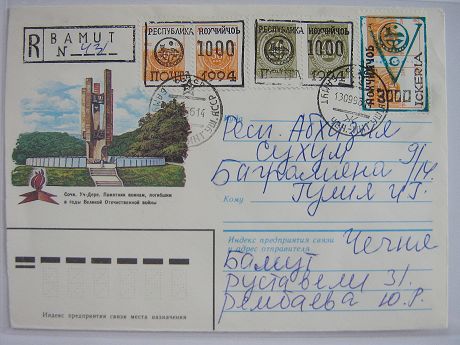 R
BAMUT
N
РЕСПУБЛИКА НОХЧИЙЧОЬ
1000
ПОЧТА 1994
НОХЧИЙЧОЬ
1000
1994
НОХЧИЙЧОЬ
ICKERIA
300
Сочи. Уч-Дере. Памятник воинам, погибшим
в годы Великой Отечественной войны
Куда
Респ. Абхазия
Сухум
Баграмиана 9/14
Кому
Гулия Ч Г.
Индекс предприятия связи
и адрес отправителя
Чечня
Бамут
Руставели 31.
Рембаева Ю. Р.
Индекс предприятия связи места назначения